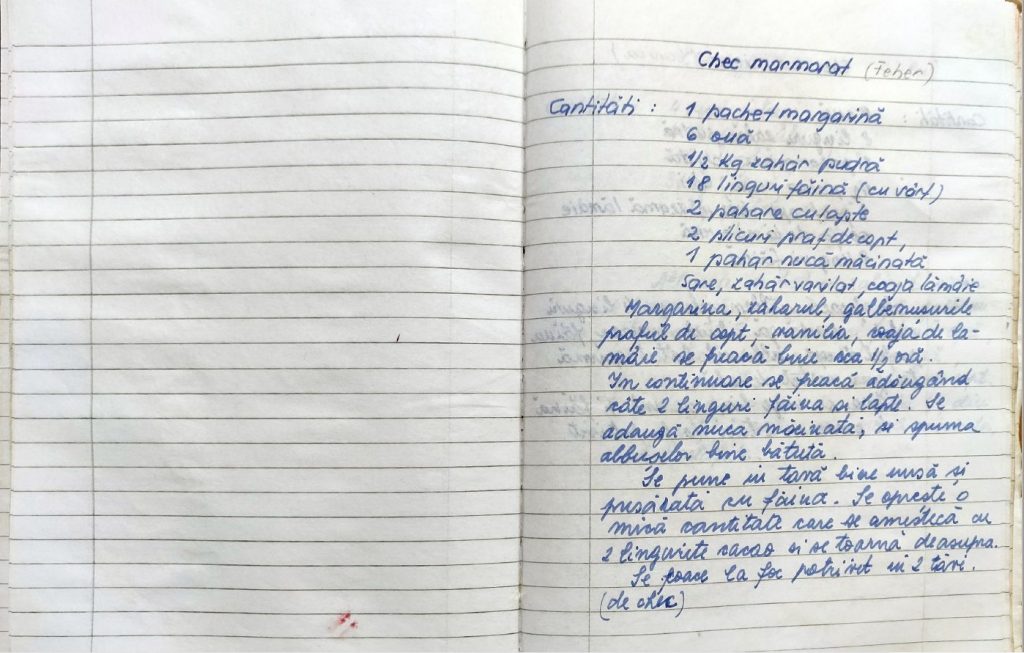 Chec marmorat (Feher)
Cantități : 1 pachet margarină
6 ouă
1/2 Kg zahăr pudră
18 linguri făină (cu vârf)
2 pahare cu lapte
2 plicuri praf de copt,
1 pahăr nucă măcinată
Sare, zahăr vanilat, coaja lămâie
Margarina, zaharul, gălbenușurile
praful de copt, vanilia, coaja de la-
măie se freacă bine cca 1/2 oră.
In continuare se freacă adăugând
câte 2 linguri făina si lapte. Se
adaugă nuca măcinată, si spuma
albușelor bine bătută.
Se pune in tavă bine unsă și
presărată cu făina. Se oprește o
mică cantitate care se amestică cu
2 lingurite cacao si se toarnă deasupra.
Se coace la foc potrivit in 2 tăvi.
(de chec)